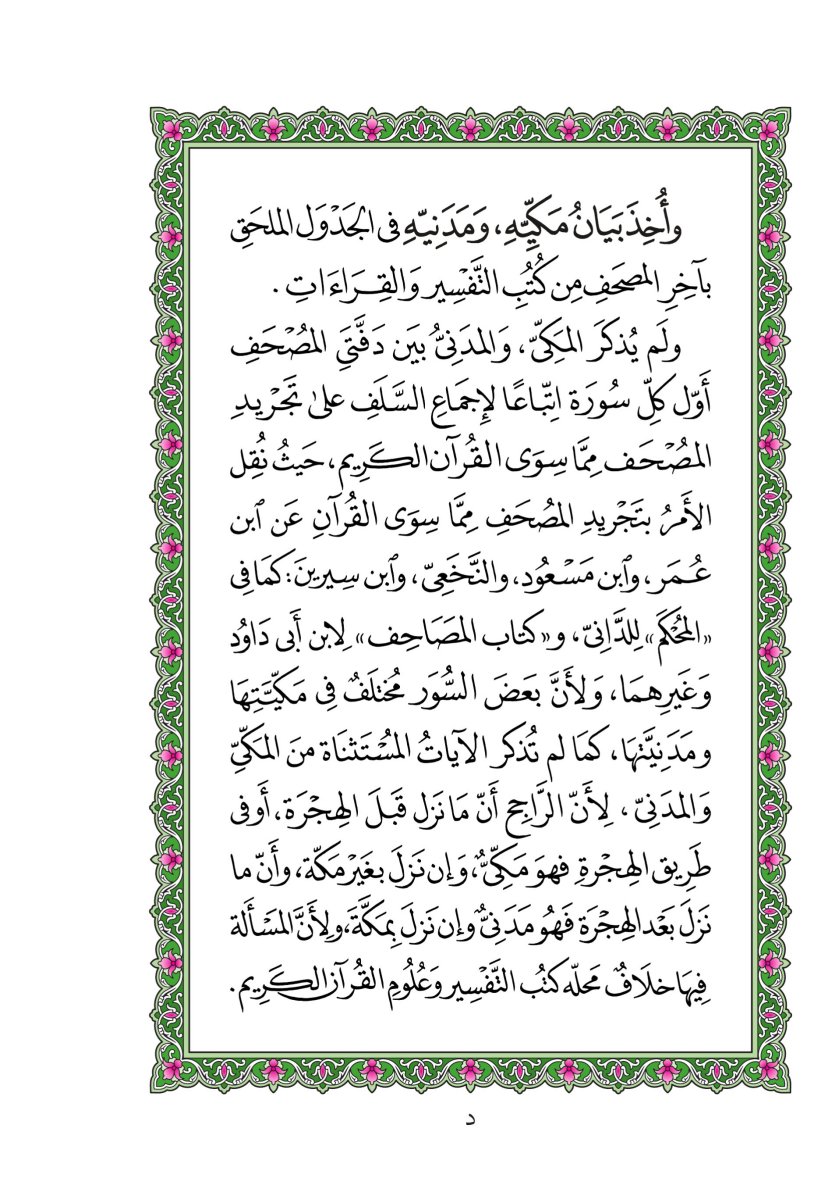 وأُخِذَ بَيَانُ مَكِّيِّهِ، وَمَدَنِيِّهِ فى الجَدْوَل الملحَقِ
بآخِرِ المصحَفِ مِن كُتُبِ التَّفْسِير وَالقِرَاءَاتِ .
ولَم يُذكَرَ المَكِىّ، وَالمدَنِىُّ بَيَن دَفَّتَىِ المصُحَفِ
أَوّل كلِّ سُورَة اتِّبَاعًا لإجمَاعِ السَّلَفِ علىٰ تَجَرْيدِ
المصُحَف مِمَّا سِوَى القُرآن الكَرِيم، حَيثُ نُقِل
الأَمرُ بتَجْريدِ المصُحَفِ مِمَّا سِوَى القُرآنِ عَن ٱبن
عُمَر، وٱبن مَسْعُود، والنَّخَعِىّ، وٱبن سِيرينَ: كمَا فِى
«المُحْكَم» لِلدَّانِىّ، و«كتاب المصَاحِف» لِابن أَبى دَاوُد
وَغَيرِهمَا، وَلأَنَّ بَعضَ السُّوَر مُختَلَفٌ فِى مَكيَّتِهَا
ومَدَنِيَّتهَا، كمَا لم تُذكَر الآيَاتُ المسُتَثنَاة منَ المكِّىِّ
وَالمدَنِىّ ، لِأَنّ الرَّاجِح أَنّ مَا نَزل قَبلَ الهِجْرَة، أَو فى
طَرِيق الهِجْرَةِ فهوَ مَكِّىٌّ، وَإن نَزلَ بغَيْر مَكّة، وأَنّ ما
نَزلَ بَعْد الهِجْرَة فَهُو مَدَنىٌّ وإن نَزلَ بِمَكَّةَ، ولِأَنَّ المَسْأَلة
فِيهَا خلَافٌ مَحلّه كتُبُ التَّفْسِير وَعُلُومِ القُرآن الكَرِيم.
د